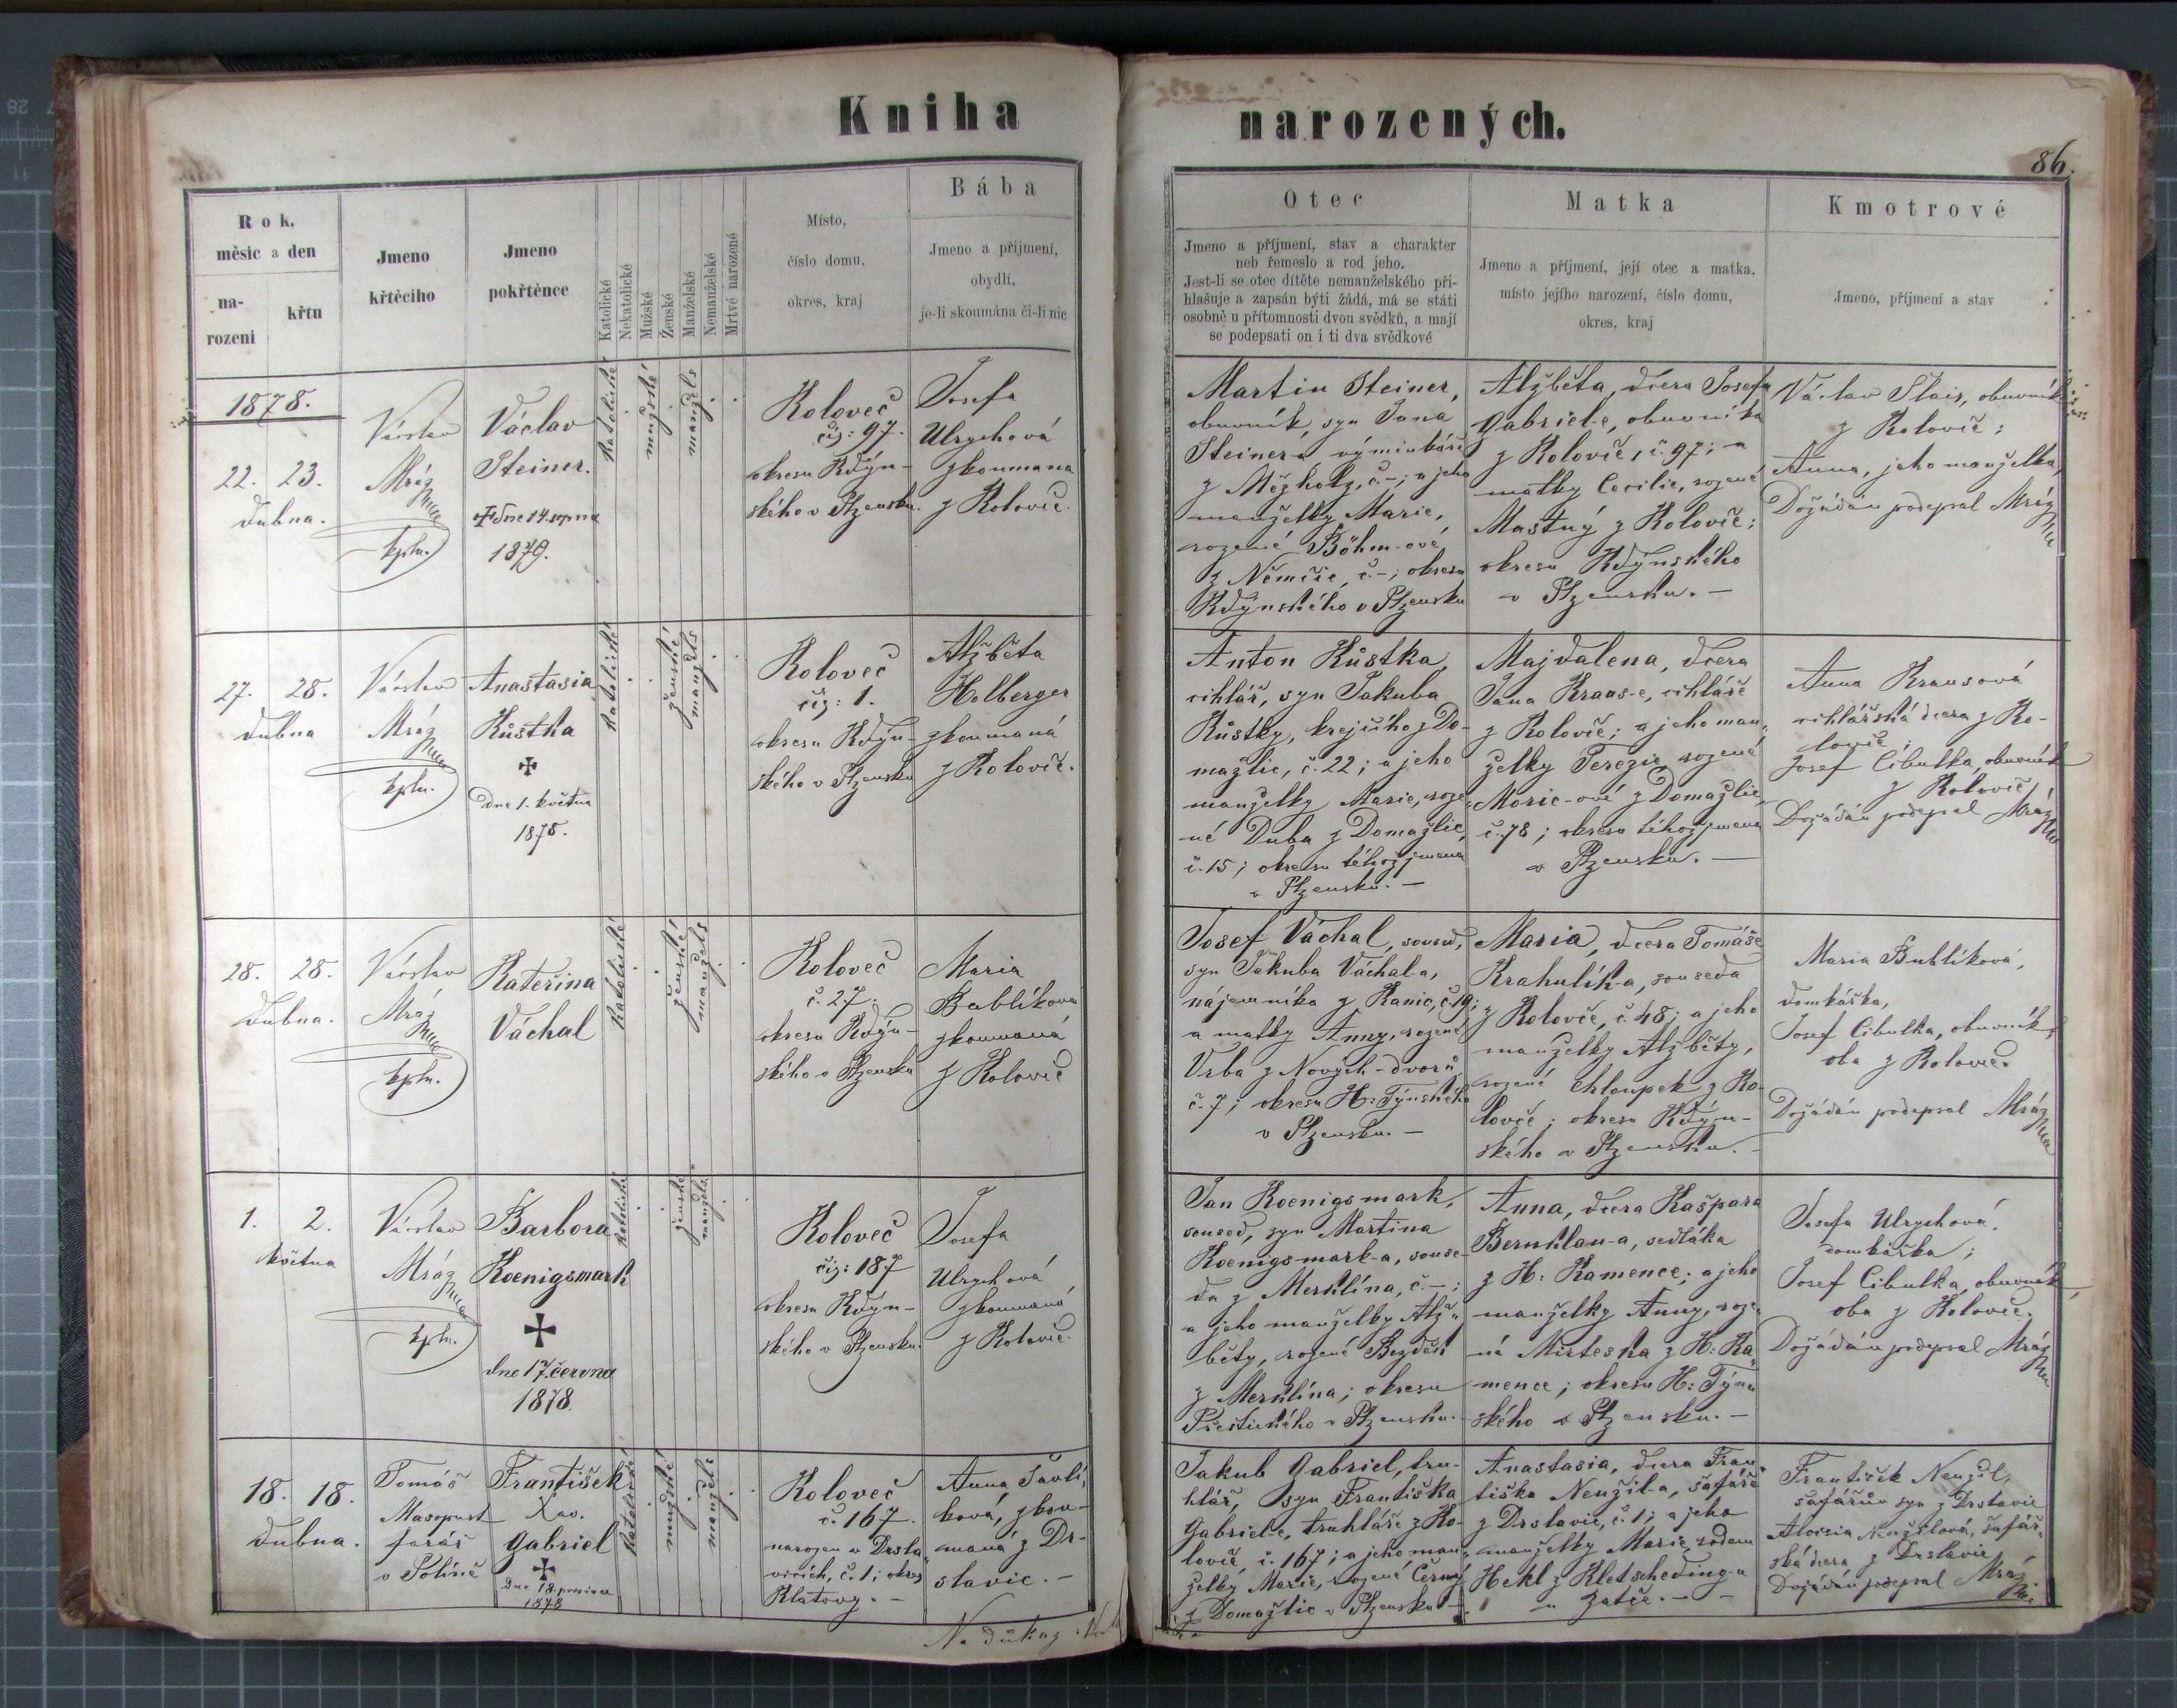 Kniha
narozených.
86.
Rok,
měsíc a den
na-
rozeni
křtu
Jmeno
křtěcího
Jmeno
pokřtěnce
Katolické
Nekatolické
Mužské
Ženské
Manželské
Nemanželské
Mrtvé narozené
Místo,
číslo domu,
okres, kraj
Bába
Jmeno a přijmení,
obydlí,
je-li skoumána či-li nic
Otec
Jmeno a příjmení, stav a charakter
neb řemeslo a rod jeho.
Jest-li se otec dítěte nemanželského při-
hlašuje a zapsán býti žádá, má se státi
osobně u přítomnosti dvou svědků, a mají
se podepsati on i ti dva svědkové
Matka
Jmeno a příjmení, její otec a matka,
místo jejího narození, číslo domu,
okres, kraj
Kmotrové
Jmeno, příjmení a stav
1878.
22. 23.
dubna.
Václav
Mráz
kpln.
Václav
Steiner.
dne 14. srpna
1879.
Katolické
mužské
manžels
Koloveč
čís: 97.
okresu Kdýn-
ského v Plzensku.
Josefa
Ulrychová
zkoumana
z Kolovče.
Martin Steiner,
obuvník, syn Jana
Steinera výminkáře
z Mezholz, č.-; a jeho
manželky Marie,
rozené Böhm-ové
z Němčic, č.-; okresu
Kdýnského v Plzensku
Alžběta, dcera Josefa
Gabriel-e, obuvníka
z Kolovče, č. 97; a
matky Cecilie, rozené
Mastný z Kolovče;
okresu Kdýnského
v Plzensku. -
Václav Šlais, obuvník
z Kolovče;
Anna, jeho manželka,
Dožádán podepsal Mráz
27. 28.
dubna
Václav
Mráz
kpln.
Anastasia
Kůstka
dne 1. května
1878.
Katolické
ženské
manžels
Koloveč
čís: 1.
okresu Kdýn-
ského v Plzensku
Alžběta
Holberger
zkoumaná
z Kolovče.
Anton Kůstka,
cihlář, syn Jakuba
Kůstky, krejčího z Do-
mažlic, č. 22; a jeho
manželky Marie, roze-
né Duba z Domažlic,
č. 15; okresu téhož jmena
v Plzensku. -
Majdalena, dcera
Jana Kraus-e, cihláře
z Kolovče; a jeho man-
želky Terezie, rozené
Moric-ové z Domažlic,
č. 78; okresu téhož jmena
v Plzensku. -
Anna Krausová
cihlářská dcera z Ko-
lovče;
Josef Cibulka, obuvník
z Kolovče
Dožádán podepsal Mráz
28. 28.
dubna.
Václav
Mráz
kpln.
Kateřina
Váchal
Katolické
ženské
manžels
Koloveč
č. 27.
okresu Kdýn-
ského v Plzensku
Maria
Bublíkova
zkoumaná
z Kolovče
Josef Váchal, soused,
syn Jakuba Váchala,
nájemníka z Kanic, č. 19;
a matky Anny, rozené
Vrba z Nových-dvorů
č. 7; okresu H: Týnského
v Plzensku. -
Maria, dcera Tomáše
Krahulík-a, souseda
z Kolovče, č. 48; a jeho
manželky Alžběty,
rozené Chloupek z Ko-
lovče; okresu Kdýn-
ského v Plzensku. -
Maria Bublíková,
domkářka,
Josef Cibulka, obuvník,
oba z Kolovče.
Dožádán podepsal Mráz
1. 2.
května
Václav
Mráz
kpln.
Barbora
Koenigsmark
dne 17. června
1878.
Katolické
ženské
manžels.
Koloveč
čís: 187
okresu Kdýn-
ského v Plzensku.
Josefa
Ulrychová
zkoumaná
z Kolovče.
Jan Koenigsmark,
soused, syn Martina
Koenigsmark-a, souse-
da z Merklína, č.-;
a jeho manželky Alž-
běty, rozené Bezděk
z Merklína; okresu
Přestického v Plzensku.
Anna, dcera Kašpara
Bernklau-a, sedláka
z H: Kamence; a jeho
manželky Anny, roze-
né Mirteska z H: Ka-
mence; okresu H: Týn-
ského v Plzensku. -
Josefa Ulrychová,
domkářka;
Josef Cibulka, obuvník,
oba z Kolovče.
Dožádán podepsal Mráz
18. 18.
dubna.
Tomáš
Masopust
farář
v Polině
František
Xav.
Gabriel
dne 18. prosince
1878
Katolické
mužské
manžels
Koloveč
č. 167.
narozen v Drsla-
vicích, č. 1; okres
Klatovy. -
Anna Pavlí-
ková, zkou-
maná z Dr-
slavic. -
Jakub Gabriel, tru-
hlář, syn Františka
Gabriel-e, truhláře z Ko-
lovče č. 167; a jeho man-
želky Marie, rozené Černý
z Domažlic v Plzensku -
Anastasia, dcera Fran-
tiška Neužil-a, šafáře
z Drslavic, č. 1; a jeho
manželky Marie, rodem
Hekl z Kletscheding-u
u Zatče. -
František Neužil,
šafářův syn z Drslavic
Aloisia Neužilová, šafář-
ská dcera z Drslavic
Dožádán podepsal Mráz
Na důkaz